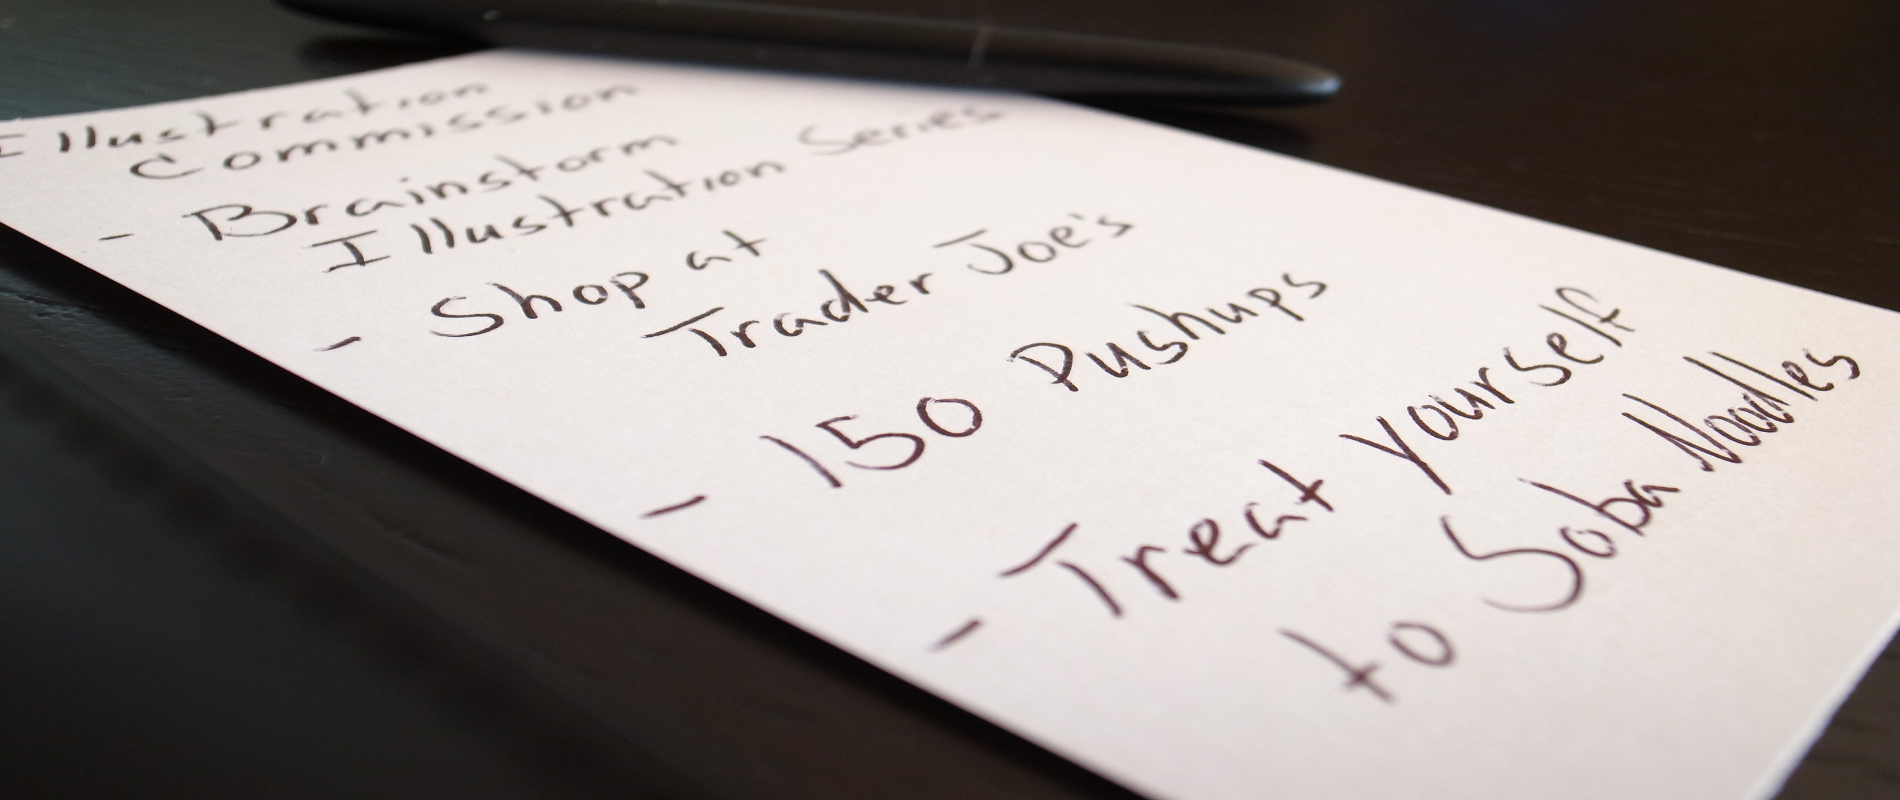 Illustration
Commission
- Brainstorm
Illustration Series
- Shop at
Trader Joe's
- 150 Pushups
- Treat yourself
to Soba Noodles